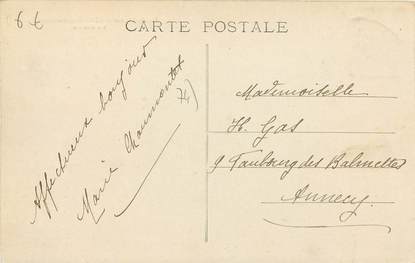 6 €
CARTE POSTALE
Affectueux bonjour
Marie
74)
Mademoiselle
H. Gas
9 Faubourg des Balmettes
Annecy.